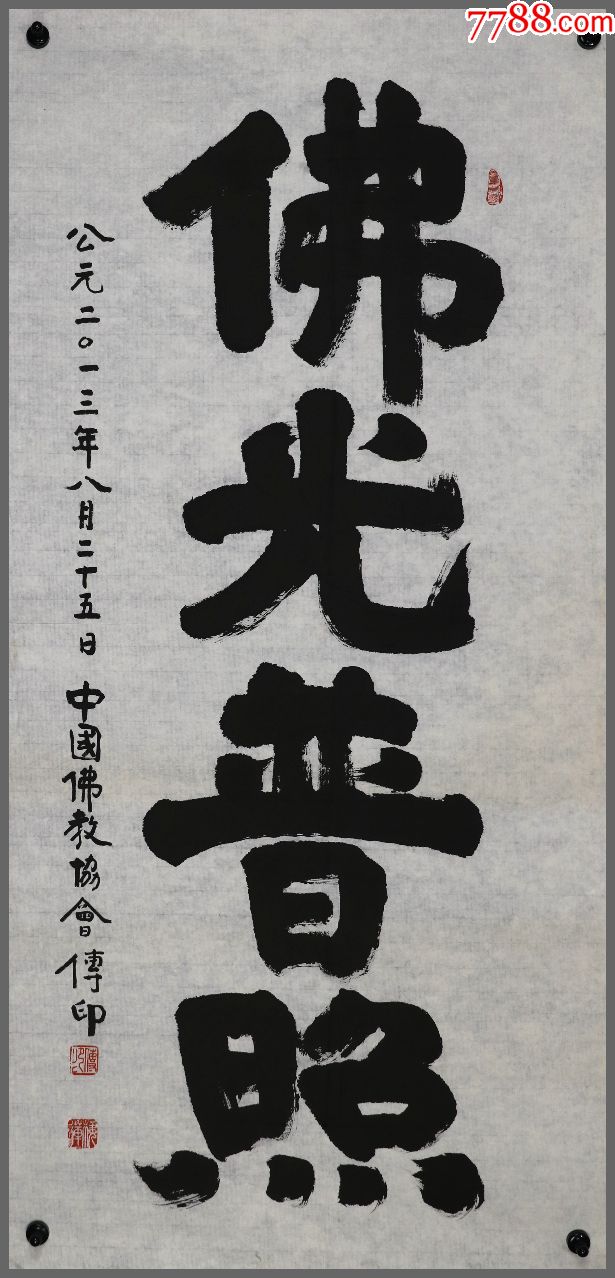 7788.com
佛光普照
公元二〇一三年八月二十五日 中國佛教協會傳印
傳印